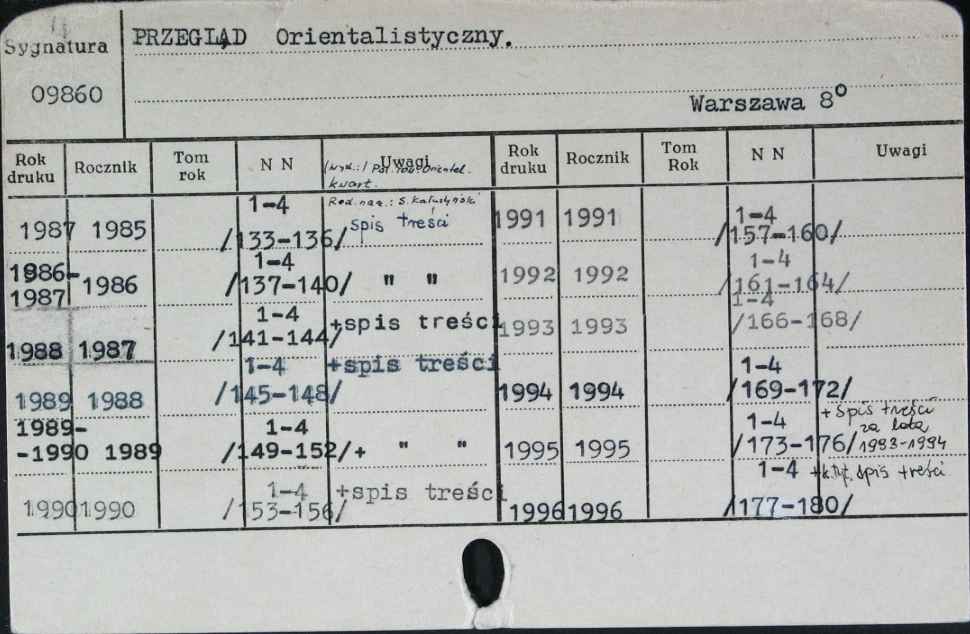 Sygnatura
PRZEGLĄD Orientalistyczny.
09860
Warszawa 8°
Rok druku Rocznik Tom rok N N Uwagi Rok druku Rocznik Tom Rok N N Uwagi
kwart.
Red. nacz.: S. Kałużyński
1987 1985 1-4 /133-136/ spis treści 1991 1991 1-4 /157-160/
1986-1987 1986 1-4 /137-140/ " " 1992 1992 1-4 /161-164/
1988 1987 1-4 /141-144/ +spis treści 1993 1993 1-4 /166-168/
1989 1988 1-4 /145-148/ +spis treści 1994 1994 1-4 /169-172/
1989--1990 1989 1-4 /149-152/+ " " 1995 1995 1-4 /173-176/ + spis treści za lata 1993-1994
1990 1990 1-4 /153-156/ +spis treści 1996 1996 1-4 /177-180/ + k.tyt. spis treści